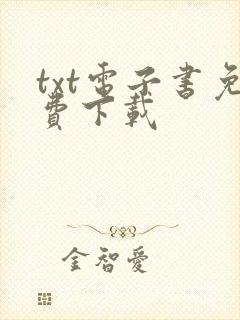 txt電子書免
費下載
金智愛